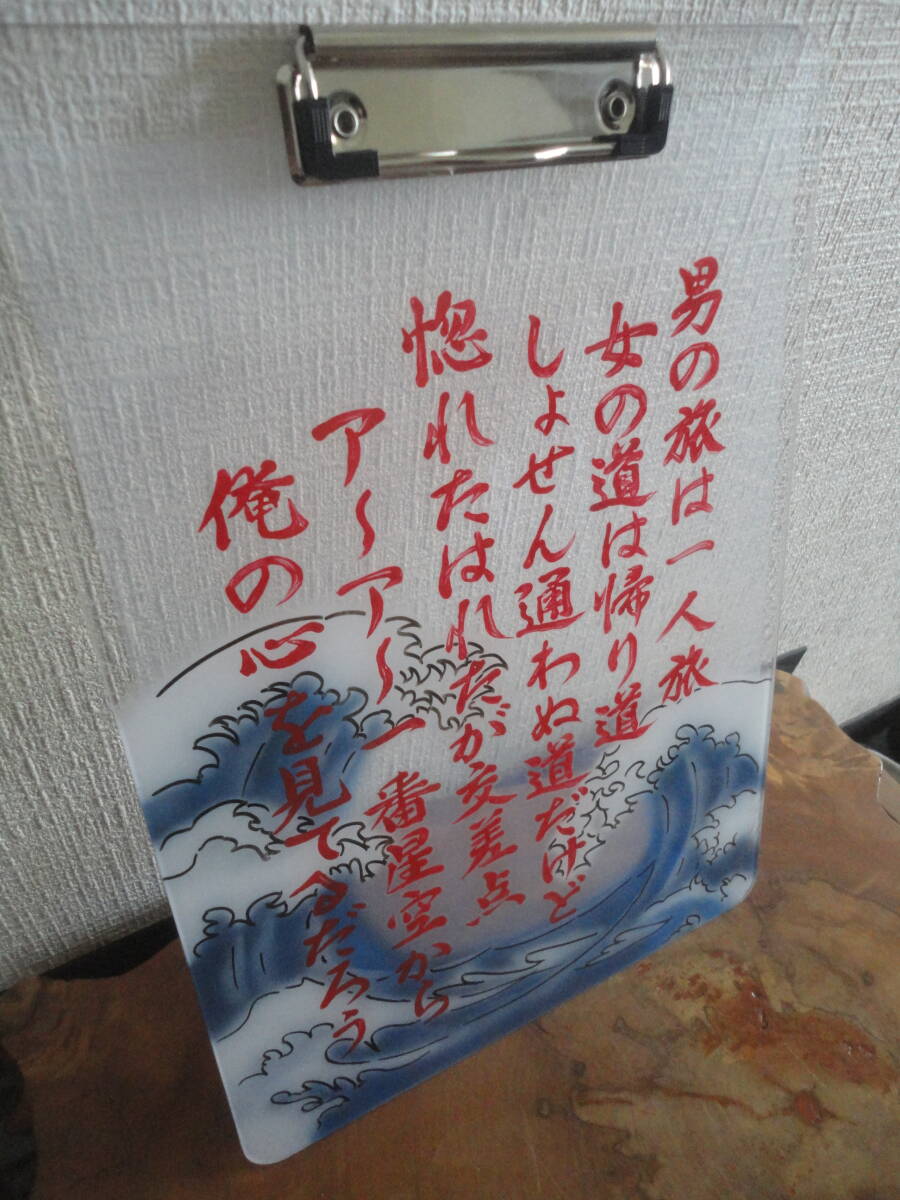 男の旅は一人旅
女の道は帰り道
しょせん通わぬ道だけど
惚れたはれたが交差点
ア〜ア〜一番星空から
俺の心を見てるだろう